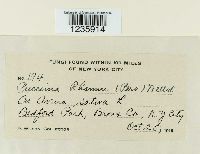 1235914
FUNGI FOUND WITHIN 100 MILES
OF NEW YORK CITY
No. 194
Puccinia Rhamni (Pers) Wettst
On Avena sativa L
Bedford Park, Bronx Co., N.Y. City
Oct.